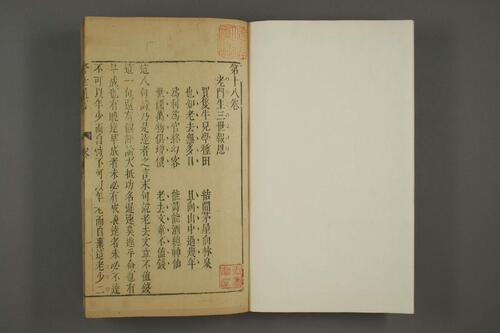 第十八卷
老門生三世報恩
買隻牛兒學種田　結間茅屋向林泉
也知老去無多日　且向山中過幾年
爲利爲官終幻客　能詩能酒總神仙
世間萬物俱增價　老去文章不值錢
這八句詩乃是達者之言末句說老去文章不值錢
這一句還有個評論大抵功名遲速莫逃乎命也有
早成也有晚達早成者未必有成晚達者未必不達
不可以年少而自恃不可以年老而自棄這老少二